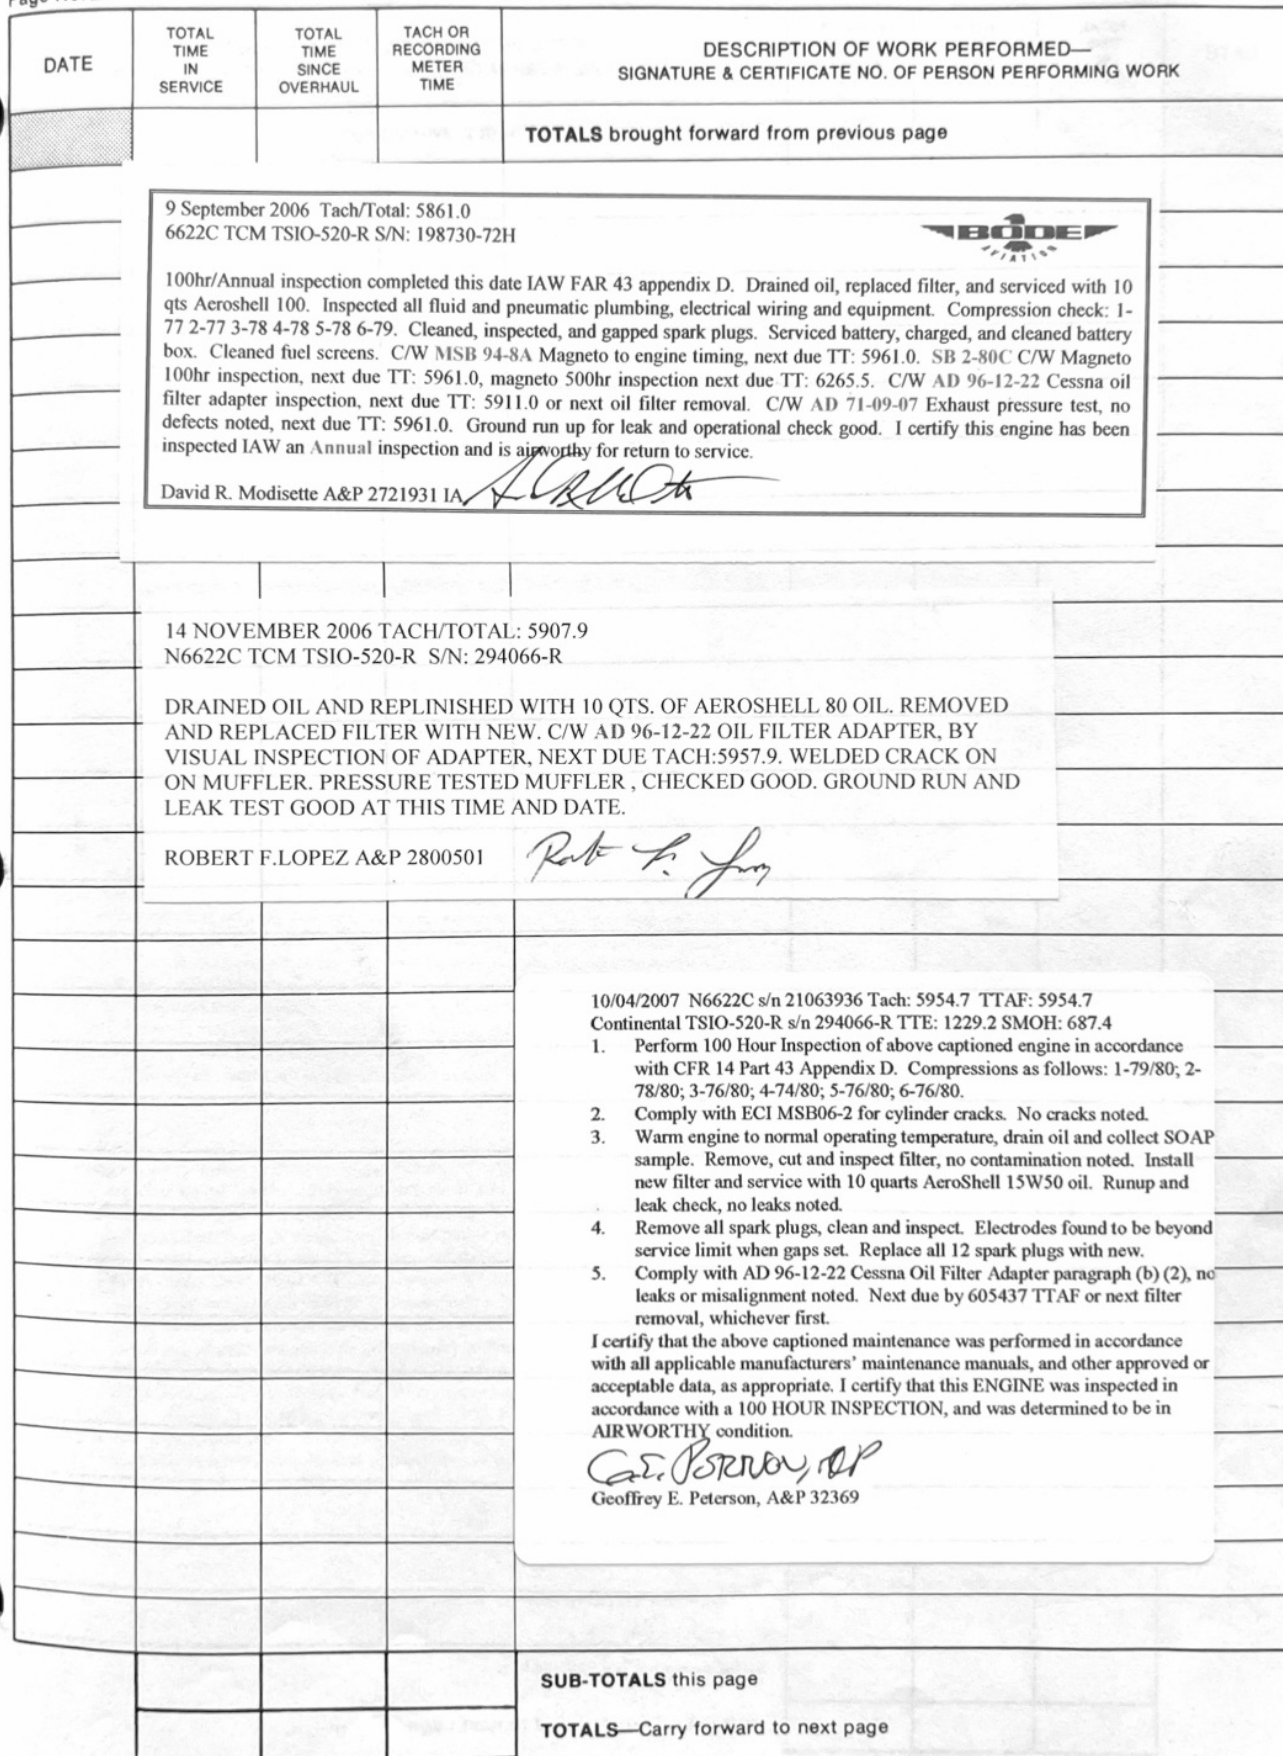 DATE
TOTAL
TIME
IN
SERVICE
TOTAL
TIME
SINCE
OVERHAUL
TACH OR
RECORDING
METER
TIME
DESCRIPTION OF WORK PERFORMED—
SIGNATURE & CERTIFICATE NO. OF PERSON PERFORMING WORK
TOTALS brought forward from previous page
9 September 2006 Tach/Total: 5861.0
6622C TCM TSIO-520-R S/N: 198730-72H
BODE
AVIATION
100hr/Annual inspection completed this date IAW FAR 43 appendix D. Drained oil, replaced filter, and serviced with 10
qts Aeroshell 100. Inspected all fluid and pneumatic plumbing, electrical wiring and equipment. Compression check: 1-
77 2-77 3-78 4-78 5-78 6-79. Cleaned, inspected, and gapped spark plugs. Serviced battery, charged, and cleaned battery
box. Cleaned fuel screens. C/W MSB 94-8A Magneto to engine timing, next due TT: 5961.0. SB 2-80C C/W Magneto
100hr inspection, next due TT: 5961.0, magneto 500hr inspection next due TT: 6265.5. C/W AD 96-12-22 Cessna oil
filter adapter inspection, next due TT: 5911.0 or next oil filter removal. C/W AD 71-09-07 Exhaust pressure test, no
defects noted, next due TT: 5961.0. Ground run up for leak and operational check good. I certify this engine has been
inspected IAW an Annual inspection and is airworthy for return to service.
David R. Modisette A&P 2721931 IA
14 NOVEMBER 2006 TACH/TOTAL: 5907.9
N6622C TCM TSIO-520-R S/N: 294066-R
DRAINED OIL AND REPLINISHED WITH 10 QTS. OF AEROSHELL 80 OIL. REMOVED
AND REPLACED FILTER WITH NEW. C/W AD 96-12-22 OIL FILTER ADAPTER, BY
VISUAL INSPECTION OF ADAPTER, NEXT DUE TACH:5957.9. WELDED CRACK ON
ON MUFFLER. PRESSURE TESTED MUFFLER , CHECKED GOOD. GROUND RUN AND
LEAK TEST GOOD AT THIS TIME AND DATE.
ROBERT F.LOPEZ A&P 2800501
10/04/2007 N6622C s/n 21063936 Tach: 5954.7 TTAF: 5954.7
Continental TSIO-520-R s/n 294066-R TTE: 1229.2 SMOH: 687.4
1. Perform 100 Hour Inspection of above captioned engine in accordance
with CFR 14 Part 43 Appendix D. Compressions as follows: 1-79/80; 2-
78/80; 3-76/80; 4-74/80; 5-76/80; 6-76/80.
2. Comply with ECI MSB06-2 for cylinder cracks. No cracks noted.
3. Warm engine to normal operating temperature, drain oil and collect SOAP
sample. Remove, cut and inspect filter, no contamination noted. Install
new filter and service with 10 quarts AeroShell 15W50 oil. Runup and
leak check, no leaks noted.
4. Remove all spark plugs, clean and inspect. Electrodes found to be beyond
service limit when gaps set. Replace all 12 spark plugs with new.
5. Comply with AD 96-12-22 Cessna Oil Filter Adapter paragraph (b) (2), no
leaks or misalignment noted. Next due by 605437 TTAF or next filter
removal, whichever first.
I certify that the above captioned maintenance was performed in accordance
with all applicable manufacturers' maintenance manuals, and other approved or
acceptable data, as appropriate. I certify that this ENGINE was inspected in
accordance with a 100 HOUR INSPECTION, and was determined to be in
AIRWORTHY condition.
Geoffrey E. Peterson, A&P 32369
SUB-TOTALS this page
TOTALS—Carry forward to next page